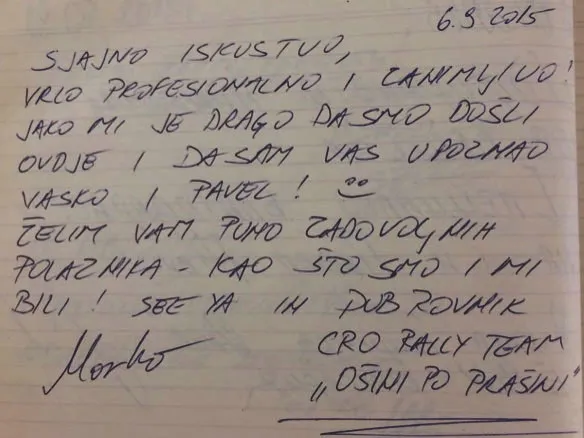 6.9.2015
SJAJNO ISKUSTVO,
VRLO PROFESIONALNO I ZANIMLJIVO!
JAKO MI JE DRAGO DA SMO DOŠLI
OVDJE I DA SAM VAS UPOZNAO
VASKO I PAVEL!
ŽELIM VAM PUNO ZADOVOLJNIH
POLAZNIKA - KAO ŠTO SMO I MI
BILI! SEE YA IN DUBROVNIK
Marko CRO RALLY TEAM
„OŠINI PO PRAŠINI“